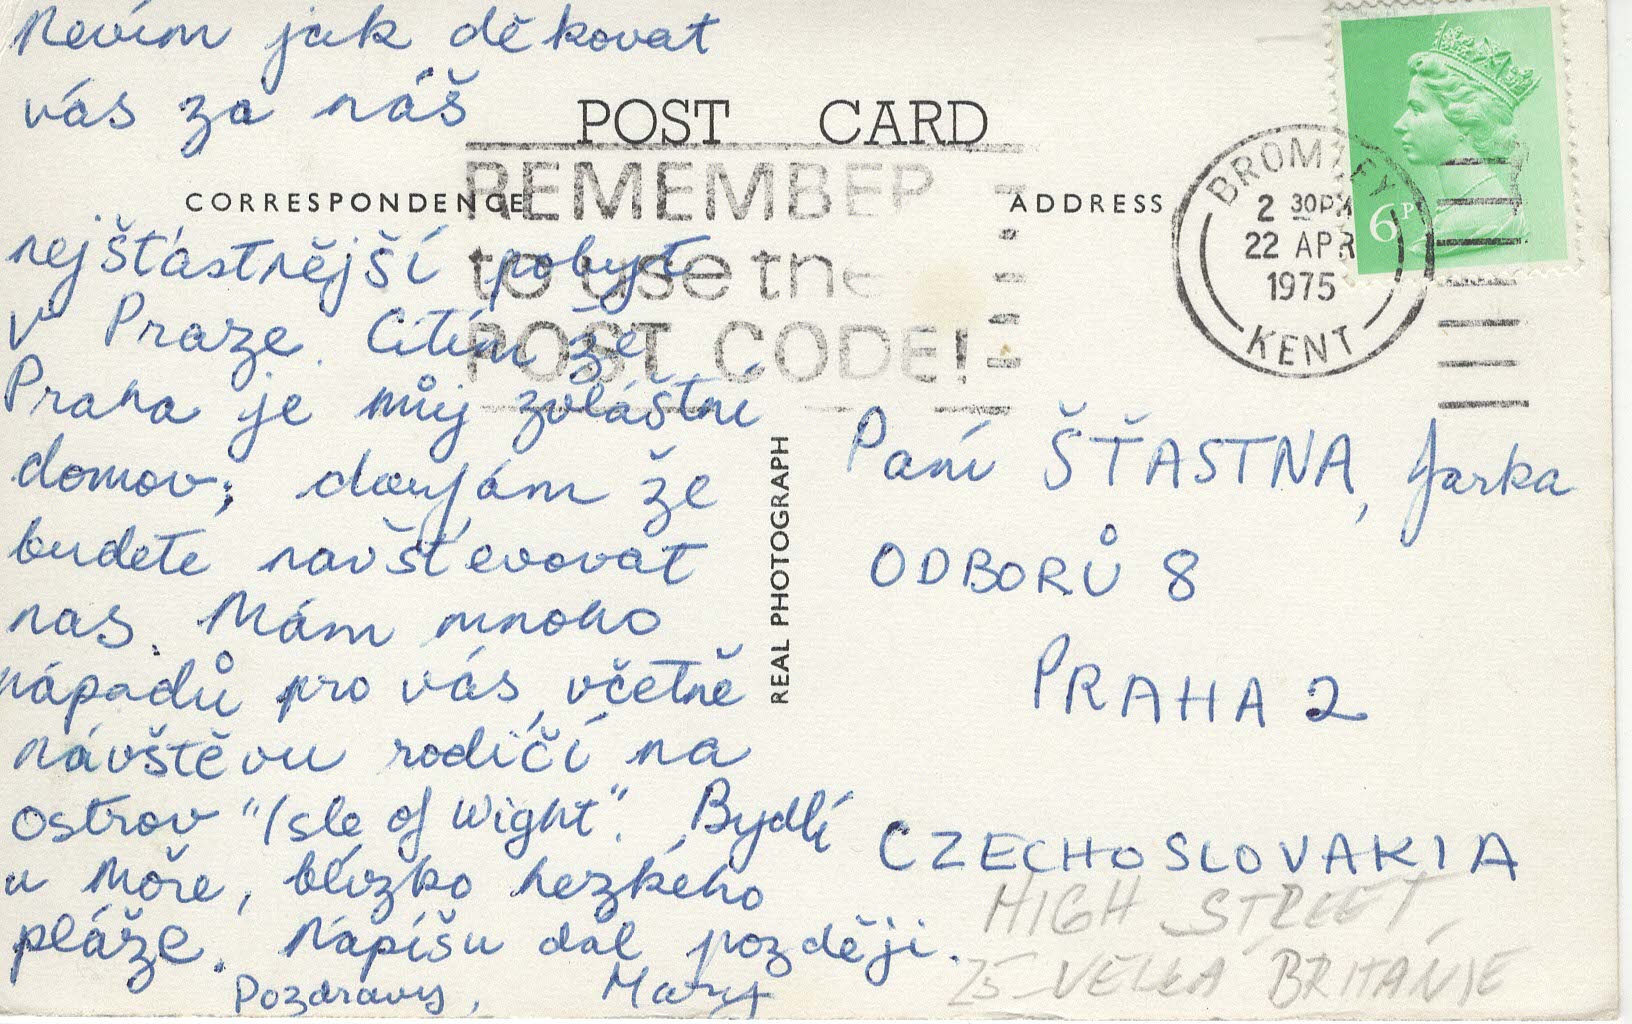 Nevím jak děkovat
vás za náš
POST CARD
REMEMBER
to use the
POST CODE!
CORRESPONDENCE
ADDRESS
BROMLEY
2 30PM
22 APR
1975
KENT
6P
nejšťastnější pobyt
v Praze. Cítím že
Praha je můj zvláštní
domov; doufám že
budete navštěvovat
nas. Mám mnoho
nápadů pro vás, včetně
návštěvu rodičí na
ostrov "Isle of Wight". Bydlí
u moře, blízko hezkého
pláže. Napíšu dal později.
Pozdravy, Mary
REAL PHOTOGRAPH
Paní ŠŤASTNA, Jarka
ODBORŮ 8
PRAHA 2
CZECHOSLOVAKIA
HIGH STREET,
VELKÁ BRITÁNIE